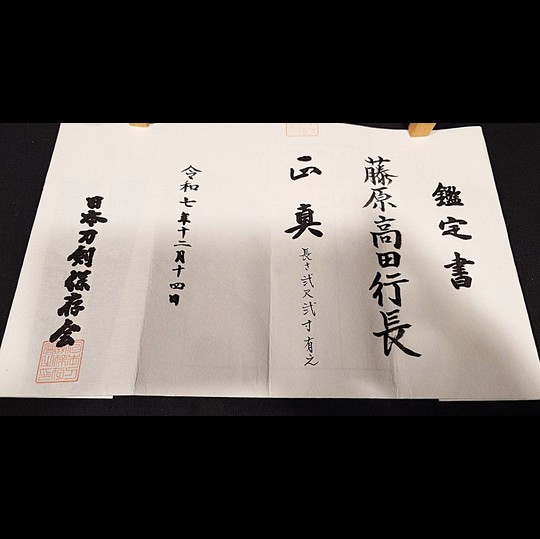 鑑定書
藤原高田行長
正真
長さ弐尺弐寸有之
令和七年十二月十四日
日本刀剣保存会